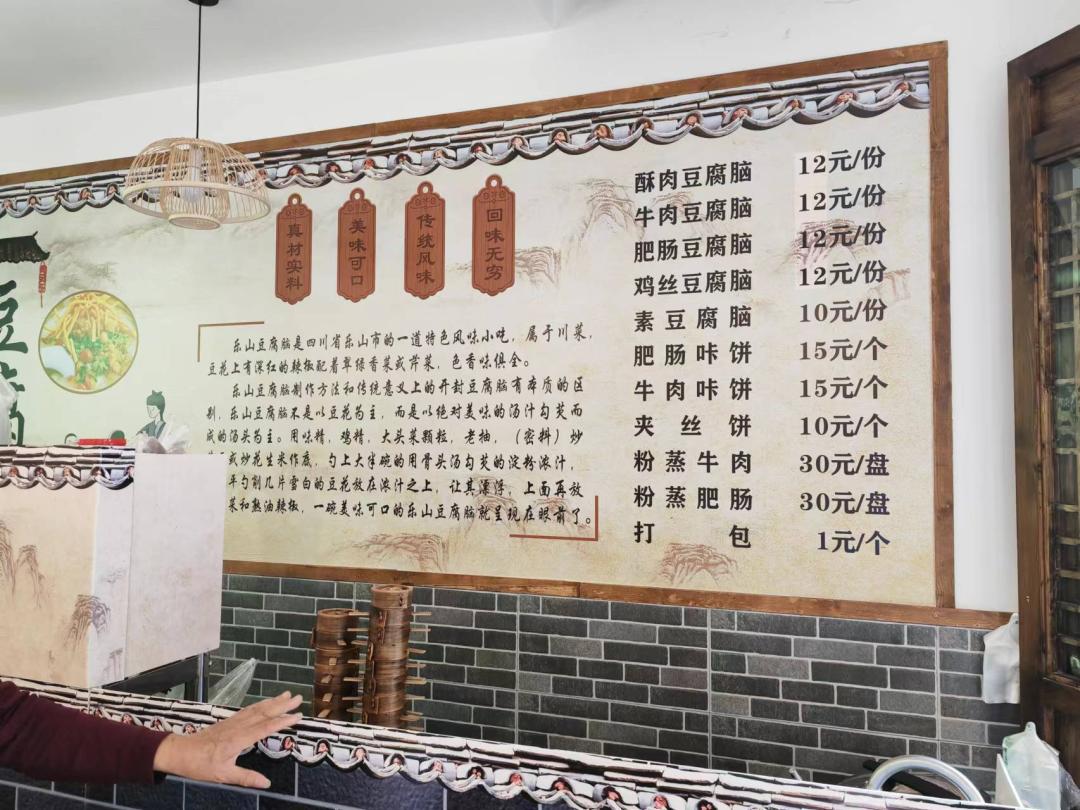 真材实料
美味可口
传统风味
回味无穷
乐山豆腐脑是四川省乐山市的一道特色风味小吃,属于川菜,
豆花上有深红的辣椒配着翠绿香菜或芹菜,色香味俱全。
乐山豆腐脑制作方法和传统意义上的开封豆腐脑有本质的区
别,乐山豆腐脑不是以豆花为主,而是以绝对美味的汤汁勾芡而
成的汤头为主。用味精,鸡精,大头菜颗粒,老抽,(密料)炒
或炒花生米作底,勺上大半碗的用骨头汤勾芡的淀粉浓汁,
平勺削几片雪白的豆花放在浓汁之上,让其漂浮,上面再放
菜和熟油辣椒,一碗美味可口的乐山豆腐脑就呈现在眼前了。
酥肉豆腐脑 12元/份
牛肉豆腐脑 12元/份
肥肠豆腐脑 12元/份
鸡丝豆腐脑 12元/份
素豆腐脑 10元/份
肥肠咔饼 15元/个
牛肉咔饼 15元/个
夹丝饼 10元/个
粉蒸牛肉 30元/盘
粉蒸肥肠 30元/盘
打包 1元/个